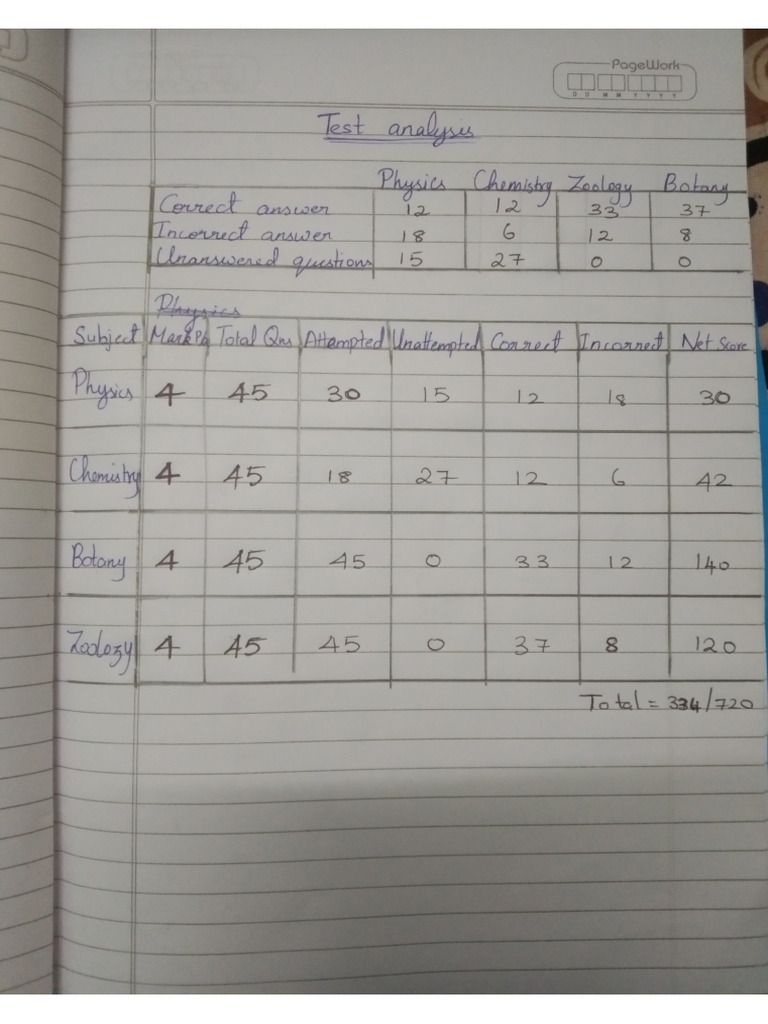 PageWork
D D M M Y Y Y Y
Test analysis
Physics Chemistry Zoology Botany
Correct answer 12 12 33 37
Incorrect answer 18 6 12 8
Unanswered questions 15 27 0 0
Physics
Subject Mark Total Qns Attempted Unattempted Correct Incorrect Net Score
Physics 4 45 30 15 12 18 30
Chemistry 4 45 18 27 12 6 42
Botany 4 45 45 0 33 12 140
Zoology 4 45 45 0 37 8 120
Total = 334/720